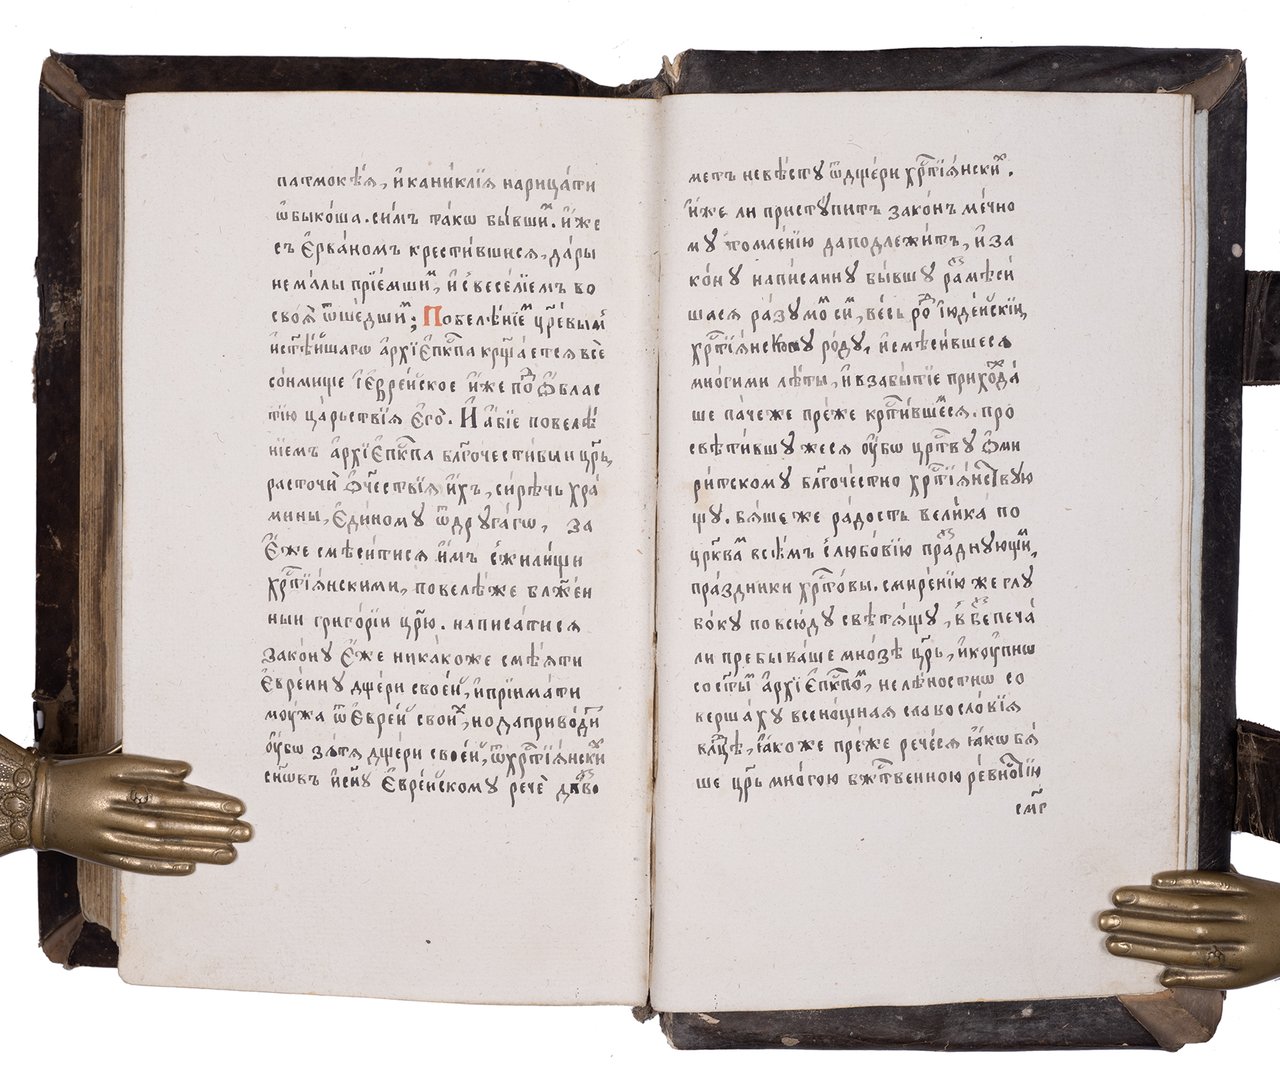 патмокі́ѧ, и҆ кани́клїѧ нарица́ти
ѡ҆быко́ша. си́мъ та́кѡ бы́вшиⷨ. и҆́же
съ є҆рва́номъ крести́вшисѧ, да́ры
нема́лы прїе́мшиⷨ, и҆ с весе́лїемъ во
своѧ҆ ѿше́дшиⷨ; Повелѣ́нїеⷨ цр҃е́вымⷤ
и҆ст҃ѣ́йшагѡ а҆рхїє҆пкⷭ҇па крⷭ҇ща́етсѧ всѐ
со́нмище і҆евре́йское и҆́же поⷣ ѻ҆́блас
тїю ца́рьствїѧ є҆гѡ̀. И҆ а҆́бїе повелѣ́
нїемъ а҆рхїє҆пкⷭ҇па бл҃гочести́выи цр҃ь,
расточѝ ѻ҆ч҃ествїѧ и҆́хъ, си́рѣчь хра́
мины, є҆ди́ному ѿ друга́гѡ, за
є҆́же смѣси́тисѧ и҆́мъ с жили́щи
хрⷭ҇тїѧ́нскими, повелѣ́ же бл҃же́н
ныи григо́рїи цр҃ю. написа́тисѧ
зако́ну є҆́же ника́коже смѣ́ѧти
є҆вре́ину дще́ри свое́й, и҆ прїима́ти
моу́жа ѿ є҆вре́й свои́ⷯ, но да приво́дⷮи
ᲂу҆́бѡ зѧ́тѧ дще́ри свое́й, ѿ хрⷭ҇тїѧ́нскиⷯ
сн҃ѡвъ и҆ сн҃у є҆вре́йскому речѐ да воⷥ
метъ невѣ́сту ѿ дще́ри хрⷭ҇тїѧ́нскиⷯ.
и҆́же ли присту́питъ зако́нъ ме́чно
му томле́нїю да подлежи́тъ, и҆ за
ко́ну напи́санну бы́вшу раⷥмѣси́
шасѧ ра́зумоⷨ си́ⷨ, ве́сь роⷣ і҆юде́йскїи,
хрⷭ҇тїѧ́нскому ро́ду, и҆ смѣси́вшесѧ
мно́гими лѣ́ты, и҆ в забы́тїе прихоⷤда́
ше па́че же пре́же крⷭ҇ти́вшⷨесѧ. про
свѣти́вшу же сѧ ᲂу҆́бѡ црⷭ҇тву ѻ҆ми
ри́тскому бл҃гоче́стно хрⷭ҇тїѧ́нствую
щу. бѧ́ше же ра́дость вели́ка по
цр҃кваⷨ всѣ́мъ с любо́вїю праⷥднующиⷨ,
пра́здники хрⷭ҇то́вы. смире́нїю же глу
бо́ку повсю́ду свѣтѧ́щу, в беⷥпеча́
ли пребыва́ше мно́зѣ цр҃ь, и҆ коу́пнѡ
со ст҃ыⷨ а҆рхїє҆пкⷭ҇поⷨ, не лѣ́ностнѡ со
верша́ху всено́щнаѧ славосло́вїѧ
влⷣцѣ, ꙗ҆́коже пре́же рече́сѧ ꙗ҆́кѡ бѧ̀
ше цр҃ь мно́гою бжⷭ҇твенною ре́вностїю
смⷬ҇г